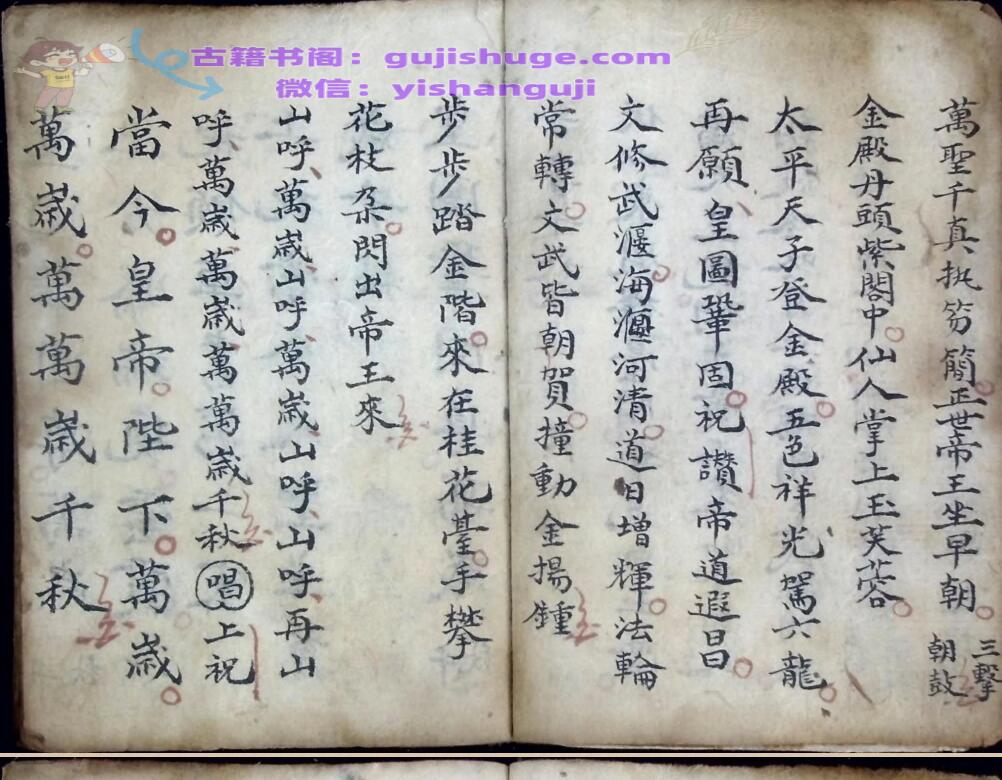 古籍书阁：gujishuge.com
微信：yishanguji
萬聖千真執笏簡。正世帝王坐早朝。三擊朝鼓
金殿丹頭紫閣中。仙人掌上玉芙蓉。
太平天子登金殿。五色祥光駕六龍。
再願、皇圖鞏固。祝讃帝道遐昌。
文修武偃海湎河清。道日增輝。法輪
常轉。文武皆朝賀。撞動金揚鍾
步步踏金階。來在桂花臺。手攀
花枝朶。閃出帝王來
山呼、萬歲、山呼、萬歲、山呼、山呼、再山
呼、萬歲、萬歲、萬萬歲千秋唱上祝
當今。皇帝。陛下。萬歲。
萬歲。萬萬歲千秋